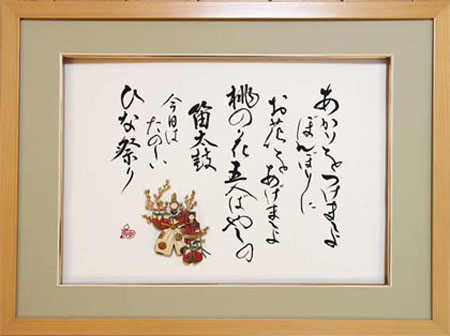 あかりをつけましよ
ぼんぼりに
お花をあげましよ
桃の花五人ばやしの
笛太鼓
今日は
たのしい
ひな祭り